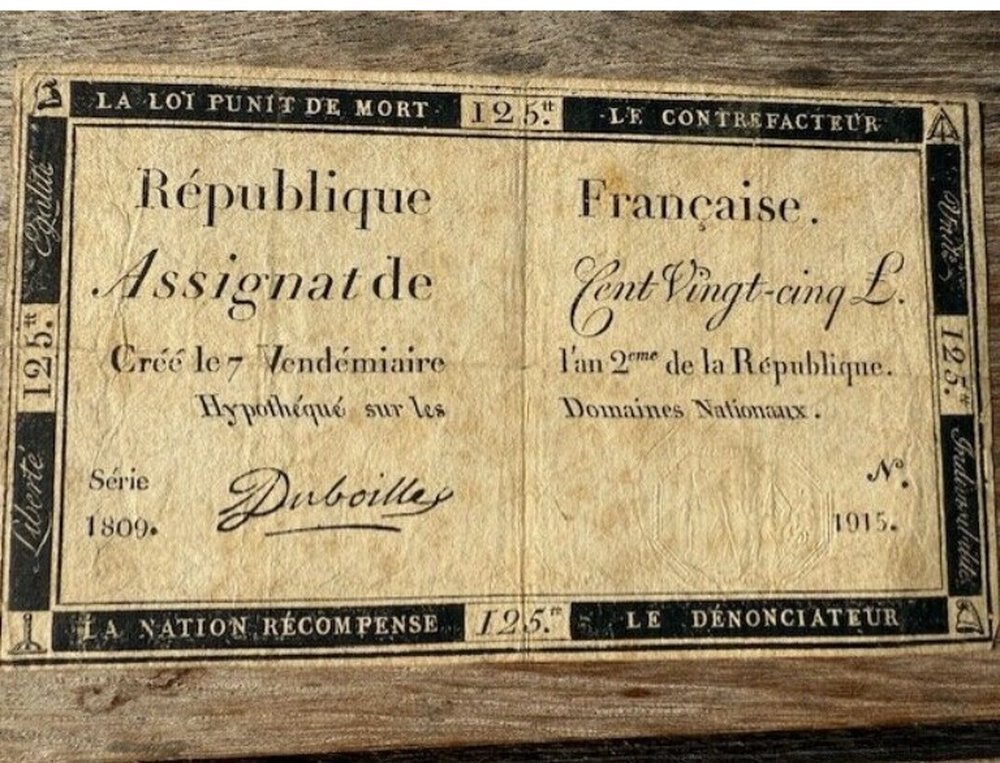 LA LOI PUNIT DE MORT 125.tt LE CONTREFACTEUR
République Française.
Assignat de Cent Vingt-cinq £.
Créé le 7 Vendémiaire l'an 2eme de la République.
Hypothéqué sur les Domaines Nationaux.
Série N.
1809. Duboille 1915.
LA NATION RÉCOMPENSE 125.tt LE DÉNONCIATEUR
Egalité
125.tt
Liberté
Unité
125.tt
Indivisibilité